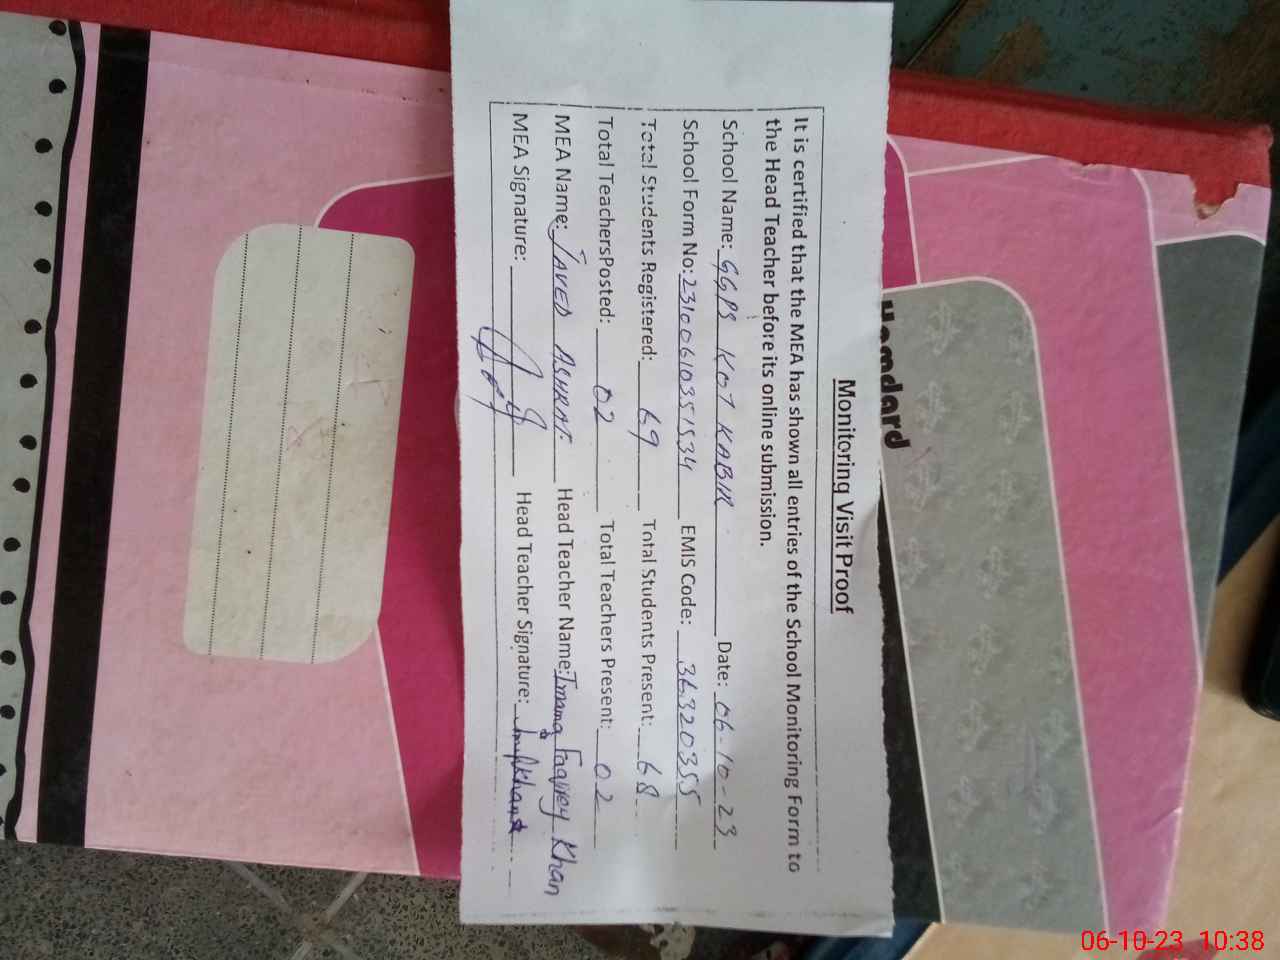 Monitoring Visit Proof
It is certified that the MEA has shown all entries of the School Monitoring Form to
the Head Teacher before its online submission.
School Name: GGPS KOT KABIR Date: 06-10-23
School Form No: 23100610351534 EMIS Code: 36320355
Total Students Registered: 69 Total Students Present: 68
Total TeachersPosted: 02 Total Teachers Present: 02
MEA Name: JAVED ASHRAF Head Teacher Name: Khan
MEA Signature: Head Teacher Signature:
Hamdard
06-10-23 10:38